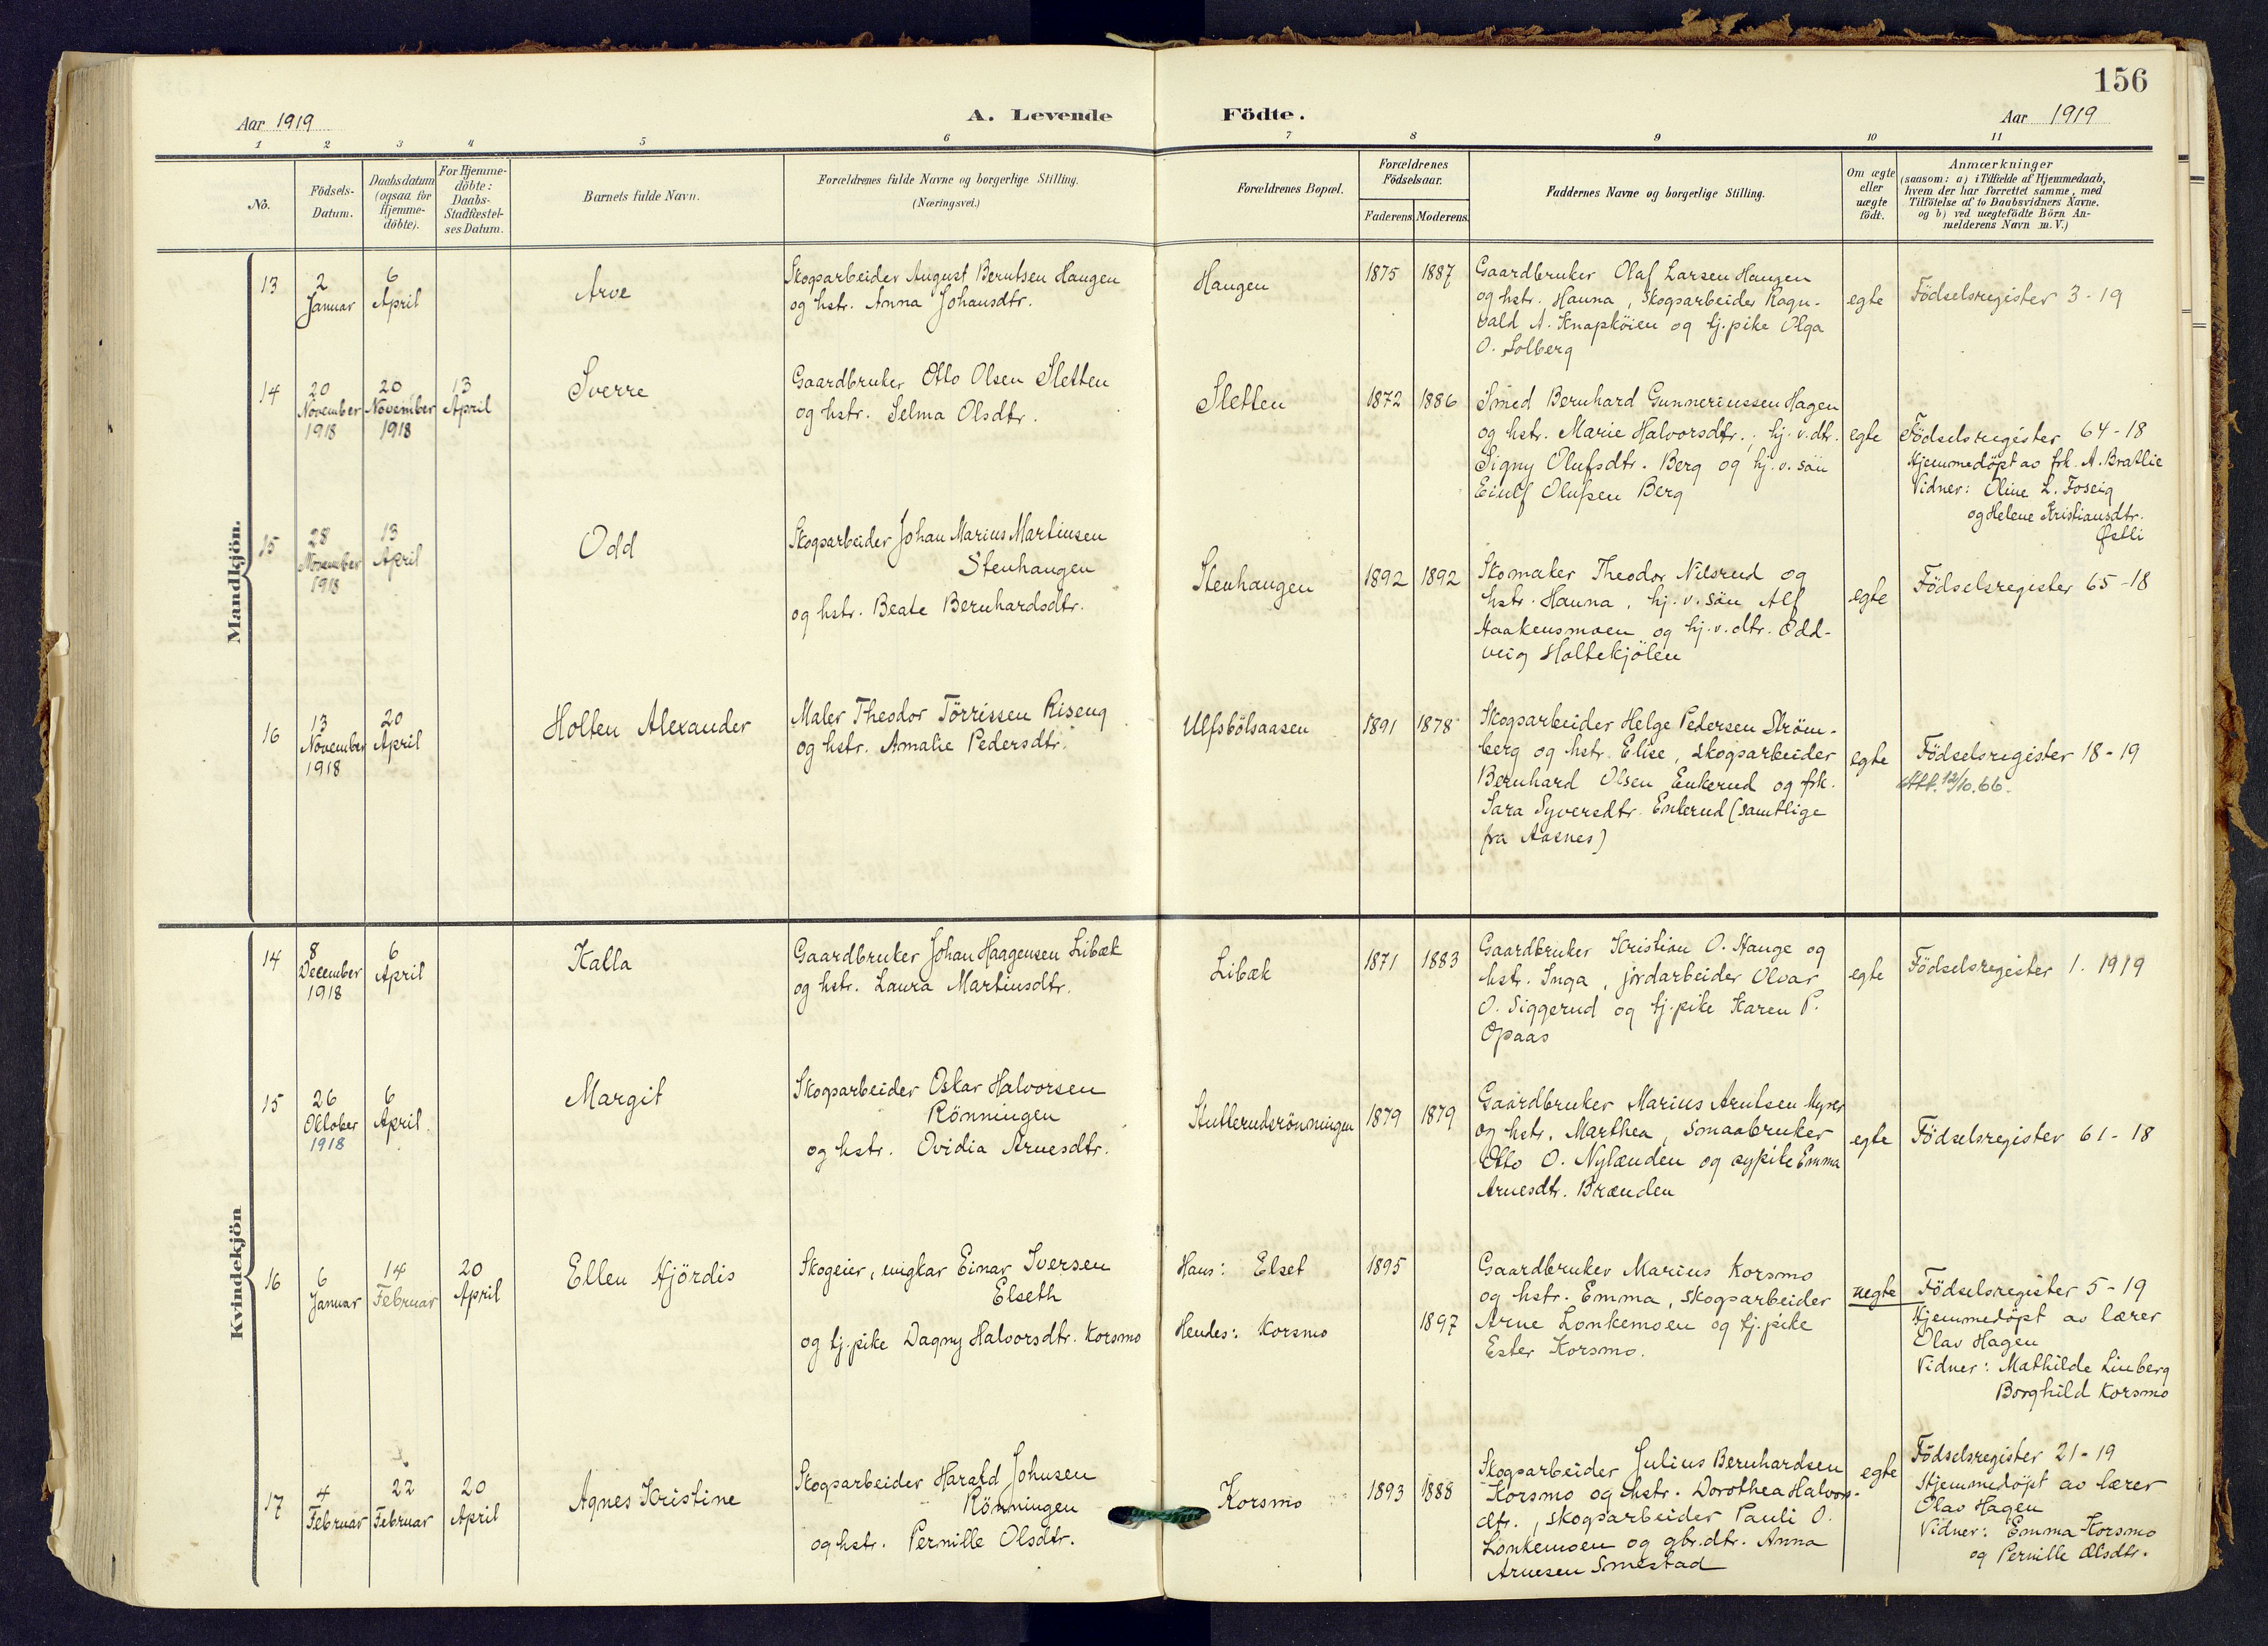 156
Aar 1919
A. Levende Födte.
Aar 1919
1 2 3 4 5 6 7 8 9 10 11
No.
Födsels-
Datum.
Daabsdatum
(ogsaa for
Hjemme-
döbte).
For Hjemme-
döbte:
Daabs-
Stadfæstel-
ses Datum.
Barnets fulde Navn.
Forældrenes fulde Navne og borgerlige Stilling.
(Næringsvei.)
Forældrenes Bopæl.
Forældrenes
Födselsaar.
Faderens. Moderens.
Faddernes Navne og borgerlige Stilling.
Om ægte
eller
uægte
födt.
Anmærkninger
(saasom: a) i Tilfælde af Hjemmedaab,
hvem der har forrettet samme, med
Tilföielse af to Daabsvidners Navne.
og b) ved uægtefödte Börn An-
melderens Navn m. V.)
Mandkjön.
13
2
Januar
6
April
Arve
Skogsarbeider August Berntsen Haugen
og hstr. Anna Johansdtr.
Haugen
1875 1887
Gaardbruker Olaf Larsen Haugen
og hstr. Hanna, skogsarbeider Ragn-
vald A. Knapköien og tj.pike Olga
O. Solberg
egte
Födselsregister 3-19
14
20
November
1918
20
November
1918
13
April
Sverre
Gaardbruker Otto Olsen Sletten
og hstr. Selma Olsdtr.
Sletten
1872 1886
Smed Bernhard Gunneriussen Hagen
og hstr. Marie Halvorsdtr., hj.v.dtr.
Signy Olufsdtr. Berg og hj.v. sön
Einlf Olufsen Berg
egte
Födselsregister 64-18
Hjemmedøpt av frk. A. Bratlie
Vidner: Oline L. Foseig
og Helene Kristiansdtr.
Østli
15
28
November
1918
13
April
Odd
Skogsarbeider Johan Marius Martinsen
Stenhaugen
og hstr. Beate Bernhardsdtr.
Stenhaugen
1892 1892
Skomaker Theodor Nilsrud og
hstr. Hanna, hj.v. sön Alf
Haakensmoen og hj.v.dtr. Odd-
veig Holtekjölen
egte
Födselsregister 65-18
16
13
November
1918
20
April
Holten Alexander
Maler Theodor Törrissen Riseng
og hstr. Amalie Pedersdtr.
Ulfsbölsaasen
1891 1878
Skogsarbeider Helge Pedersen Ström-
berg og hstr. Elise, skogsarbeider
Bernhard Olsen Enkerud og frk.
Sara Syversdtr. Enkerud (samtlige
fra Aasnes)
egte
Födselsregister 18-19
Att. 12/10.66.
Kvindekjön
14
8
December
1918
6
April
Kalla
Gaardbruker Johan Haagensen Libæk
og hstr. Laura Martinsdtr.
Libæk
1871 1883
Gaardbruker Kristian O. Hauge og
hstr. Inga, jordarbeider Olvar
O. Siggerud og tj.pike Karen P.
Opaas
egte
Födselsregister 1. 1919
15
26
Oktober
1918
6
April
Margit
Skogsarbeider Oskar Halvorsen
Rönningen
og hstr. Ovidia Arnesdtr.
Stutlerudsrönningen
1879 1879
Gaardbruker Marius Arntsen Myrer
og hstr. Marthea, smaabruker
Otto O. Nylænden og sypike Emma
Arnesdtr. Brænden
egte
Födselsregister 61-18
16
6
Januar
14
Februar
20
April
Ellen Hjördis
Skogeier, ungkar Einar Iversen
Elseth
og tj.pike Dagny Halvorsdtr. Korsmo
Hans: Elset
Hendes: Korsmo
1895
1897
Gaardbruker Marius Korsmo
og hstr. Emma, skogsarbeider
Arne Lonkemoen og tj.pike
Ester Korsmo.
uegte
Födselsregister 5-19
Hjemmedøpt av lærer
Olav Hagen
Vidner: Mathilde Linberg
Borghild Korsmo
17
4
Februar
22
Februar
20
April
Agnes Kristine
Skogsarbeider Harald Johnsen
Rönningen
og hstr. Pernille Olsdtr.
Korsmo
1893 1888
Skogsarbeider Julius Bernhardsen
Korsmo og hstr. Dorothea Halvors-
dtr., skogsarbeider Pauli O.
Lonkemoen og gbr.dtr. Anna
Arnesen Smestad
egte
Födselsregister 21-19
Hjemmedøpt av lærer
Olav Hagen
Vidner: Emma Korsmo
og Pernille Olsdtr.